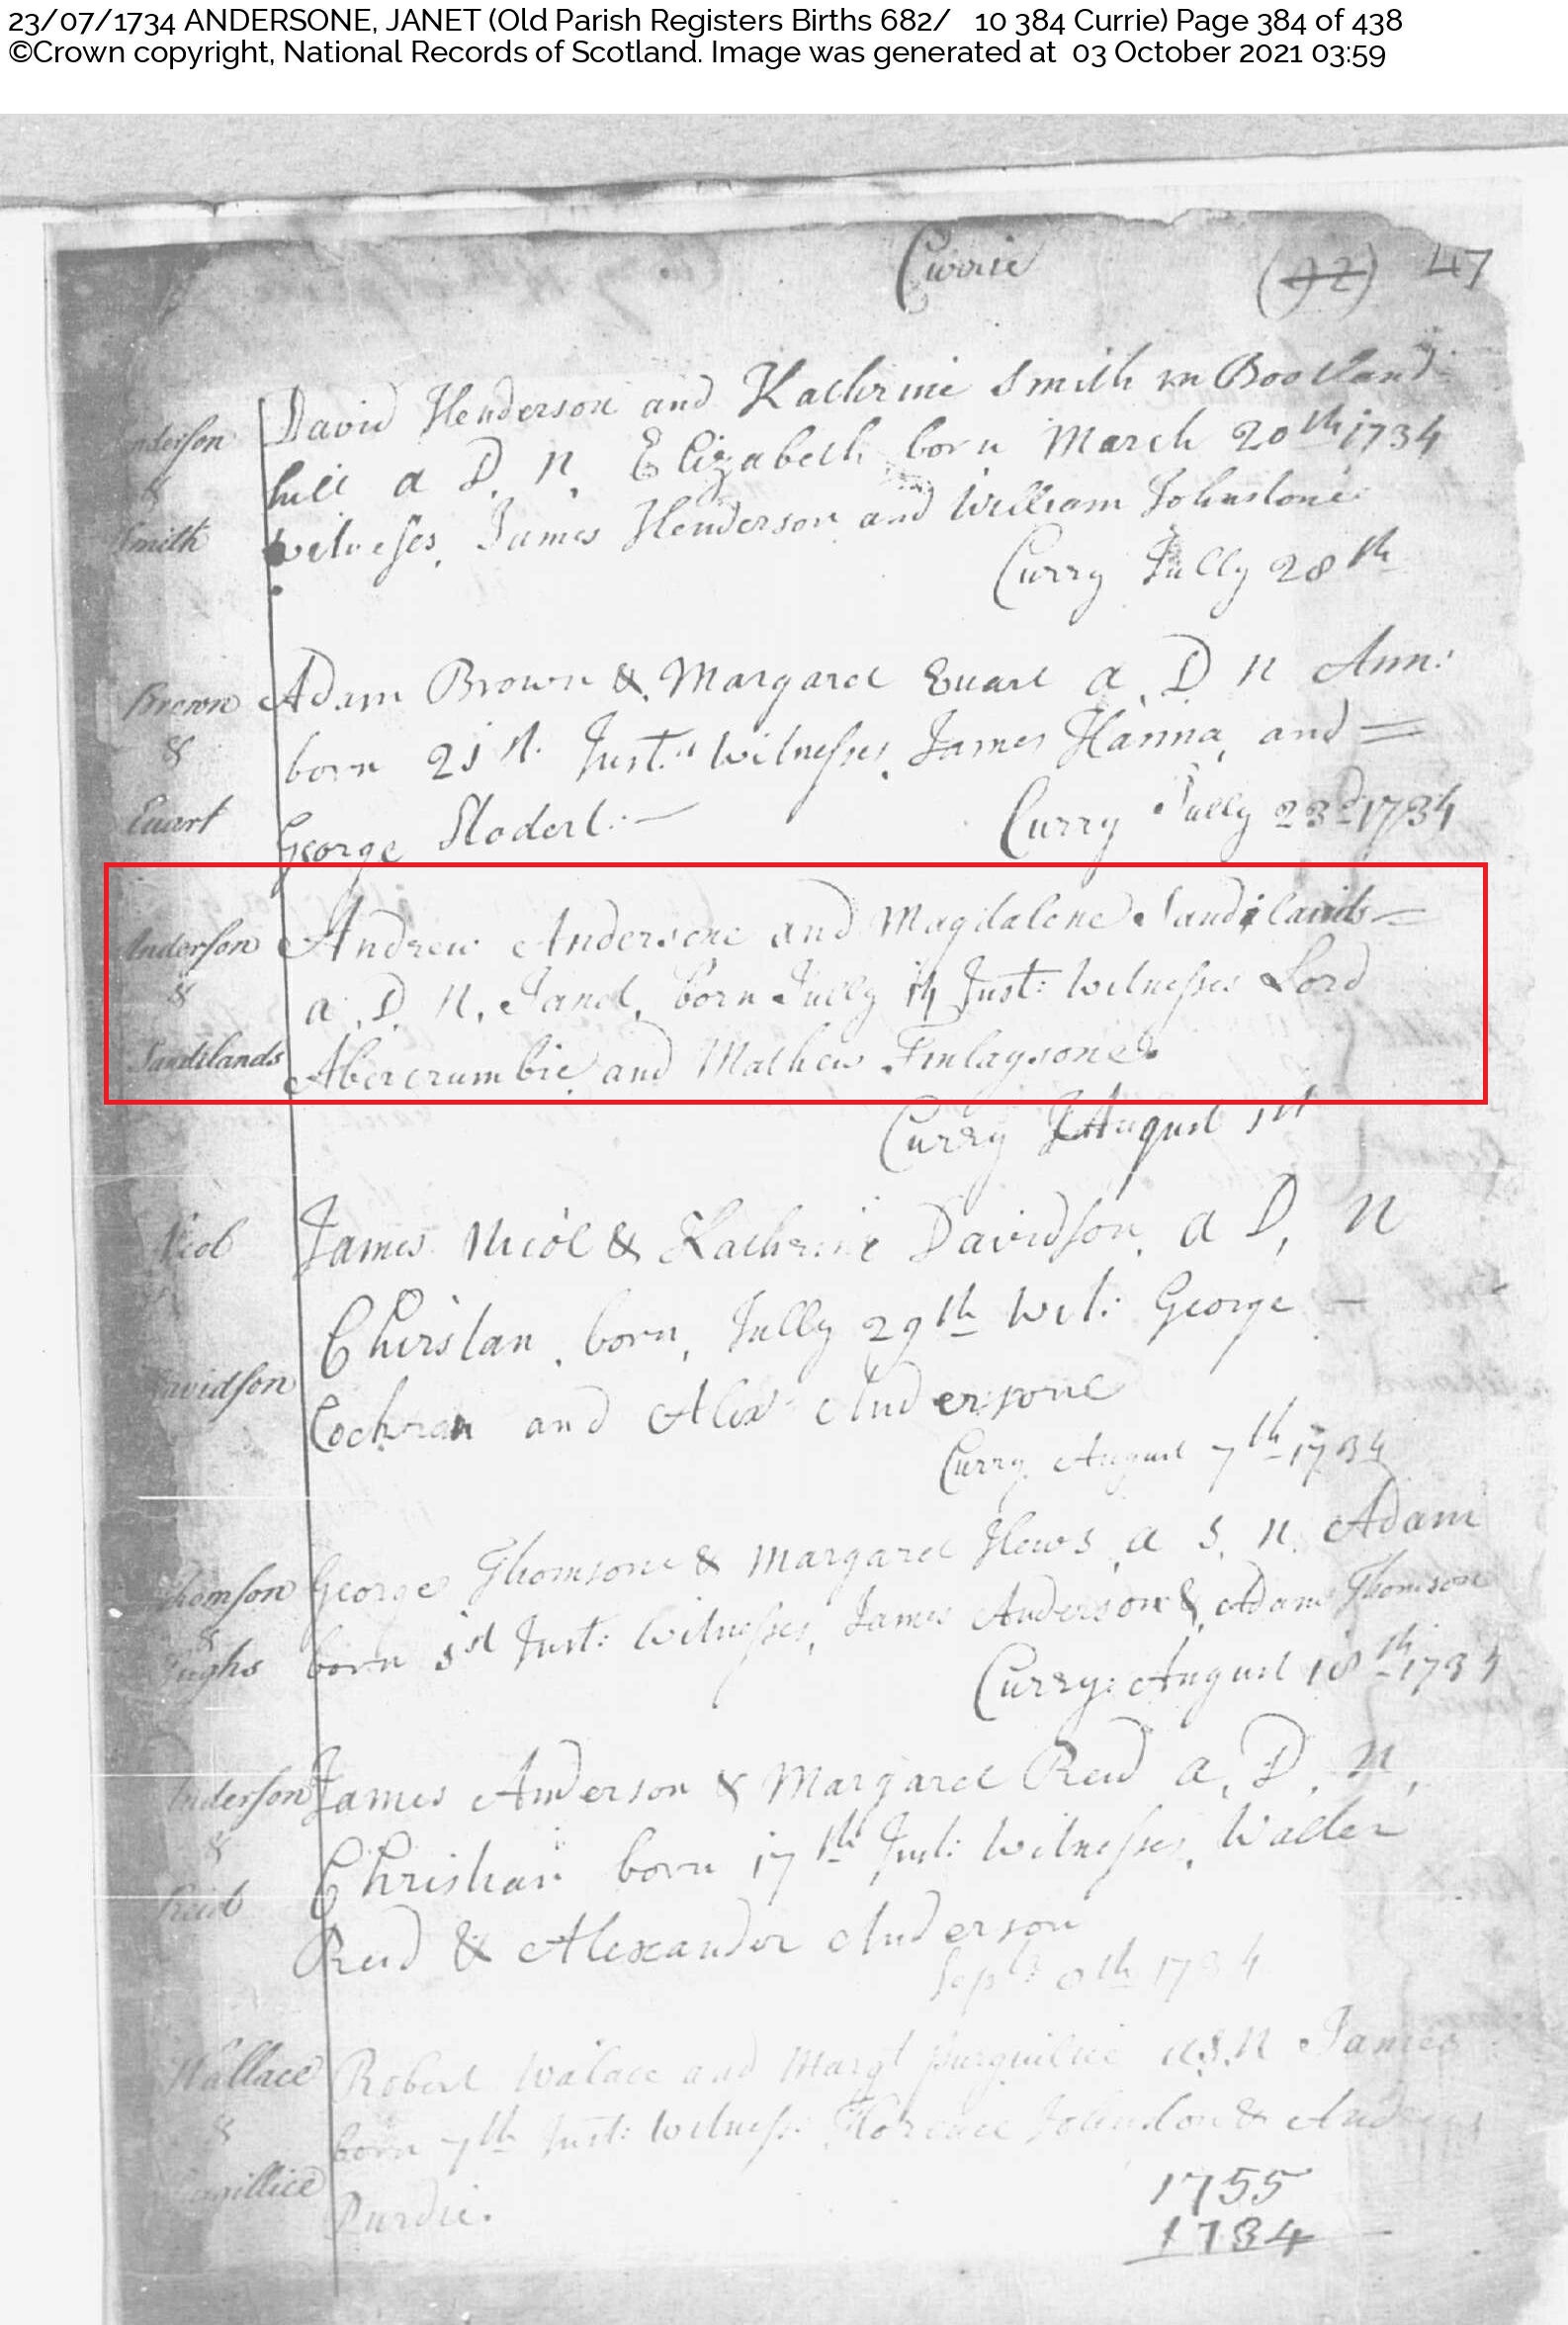 23/07/1734 ANDERSONE, JANET (Old Parish Registers Births 682/ 10 384 Currie) Page 384 of 438
©Crown copyright, National Records of Scotland. Image was generated at 03 October 2021 03:59
Currie (92) 47
David Henderson and Kathrine Smith in Bootland
nderson
hill a D. N. Elizabeth born March 20th 1734
&
Smith
witnesses, James Henderson and William Johnstone
Curry Jully 28th
Brown
Adam Brown & Margaret Euart a D N Ann:
&
born 21st Inst: witnesses, James Hanna, and =
Euart
George Stodert:—
Curry Jully 23d 1734
Anderson
Andrew Andersone and Magdalene Sandilands =
&
a. D. N. Janet, born Jully 14 Inst: witnesses Lord
Sandilands
Abercrumbie and Mathew Finlaysone.
Curry August 1st
Nicol
James Nicol & Kathrine Davidson, a D, N
Chirstan, born, Jully 29th wit: George —
avidson
Cochran and Alexr Andersone
Curry August 7th 1734
homson
George Thomsone & Margaret Hews, a S. N. Adam
&
born 1st Inst: witnesses, James Anderson & Adam Thomson
Hughs
Curry: August 18th 1734
Anderson
James Anderson & Margaret Reid a. D. N,
&
Christian born 17th Inst: witnesses, Walter
Reid
Reid & Alexander Anderson
Septr 8th 1734
Wallace
Robert Walace and Margt a S. N James
&
born 7th Inst: witness: Johnston & Andrew
Purdie.
1755
1734